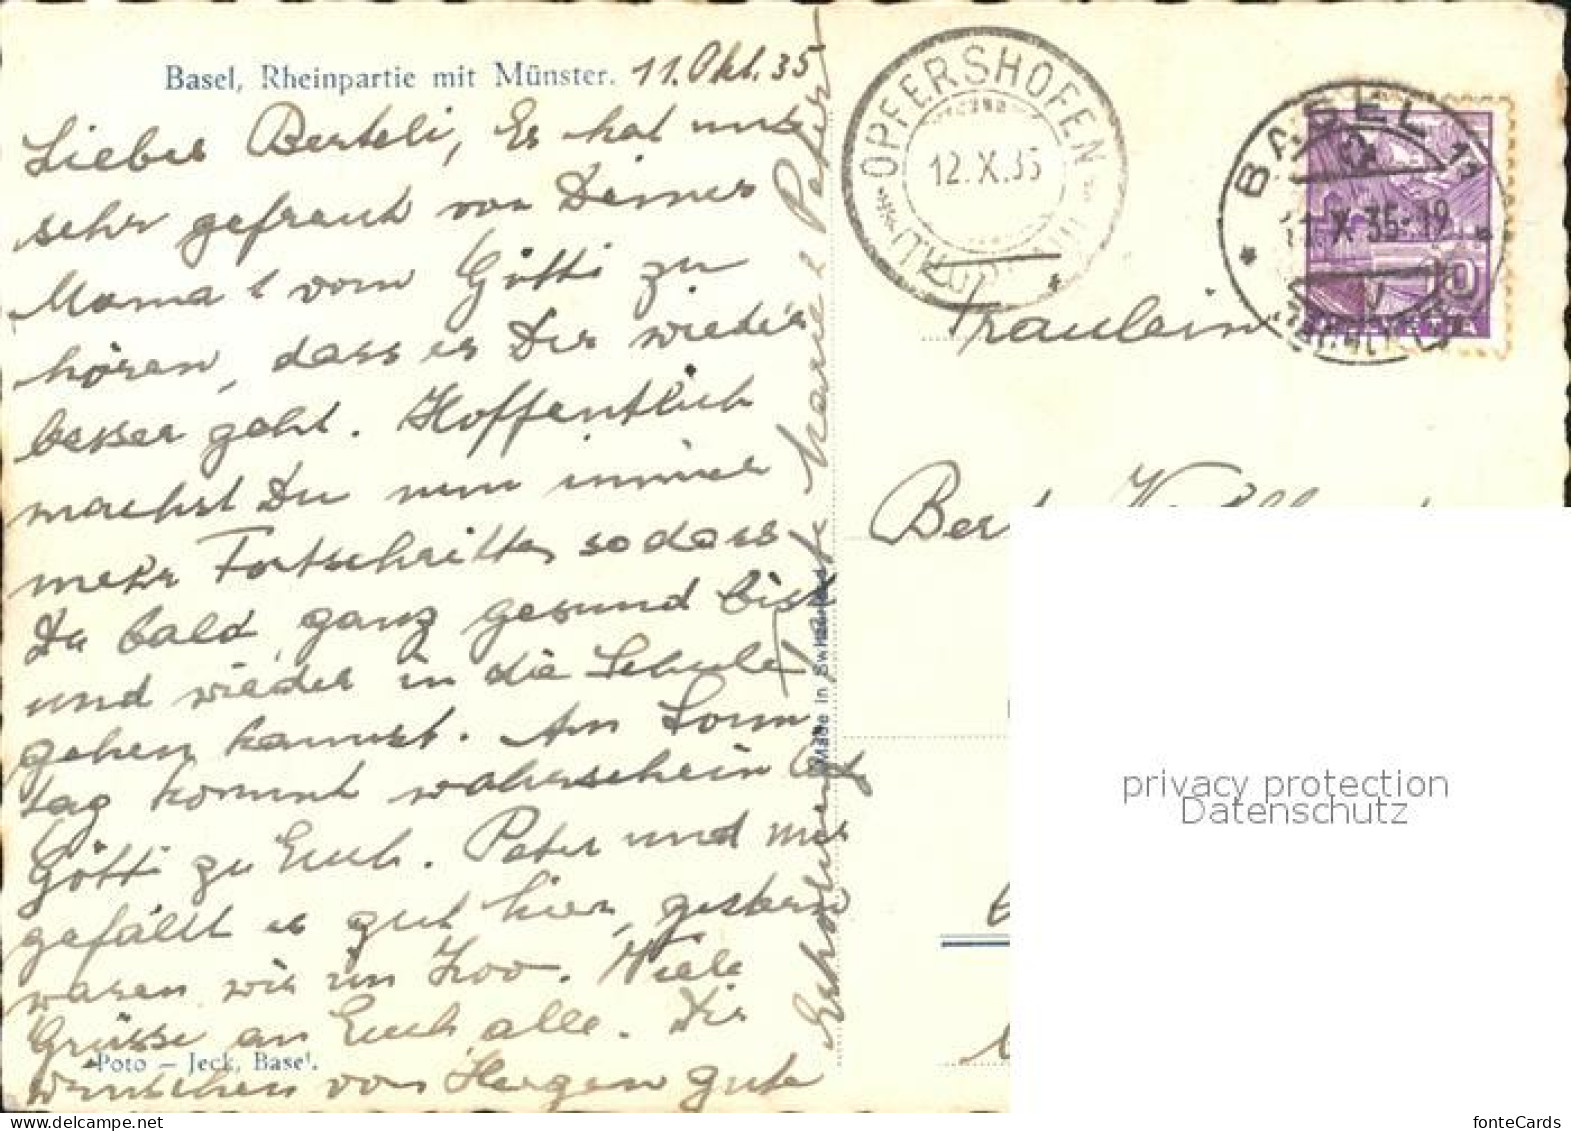 Basel, Rheinpartie mit Münster. 11. Okt. 35
Liebes Berteli, Es hat uns
sehr gefreut von Deiner
Mama & vom Götti zu
hören, dass es Dir wieder
besser geht. Hoffentlich
machst Du nun immer
mehr Fortschritte, sodass
Du bald ganz gesund bist
und wieder in die Schule
gehen kannst. Am Sonn
tag kommt wahrschein
Götti zu Euch. Peter und mir
gefällt es gut hier, gestern
waren wir im Zoo. Viele
Grüsse an Euch alle. Dir
wünschen von Herzen gute
Poto – Jeck, Basel.
Peter
Made in Switzerland
OPFERSHOFEN
12.X.35
BASEL
11.X.35-19
10
HELVETIA
Fräulein
privacy protection
Datenschutz
fonteCards